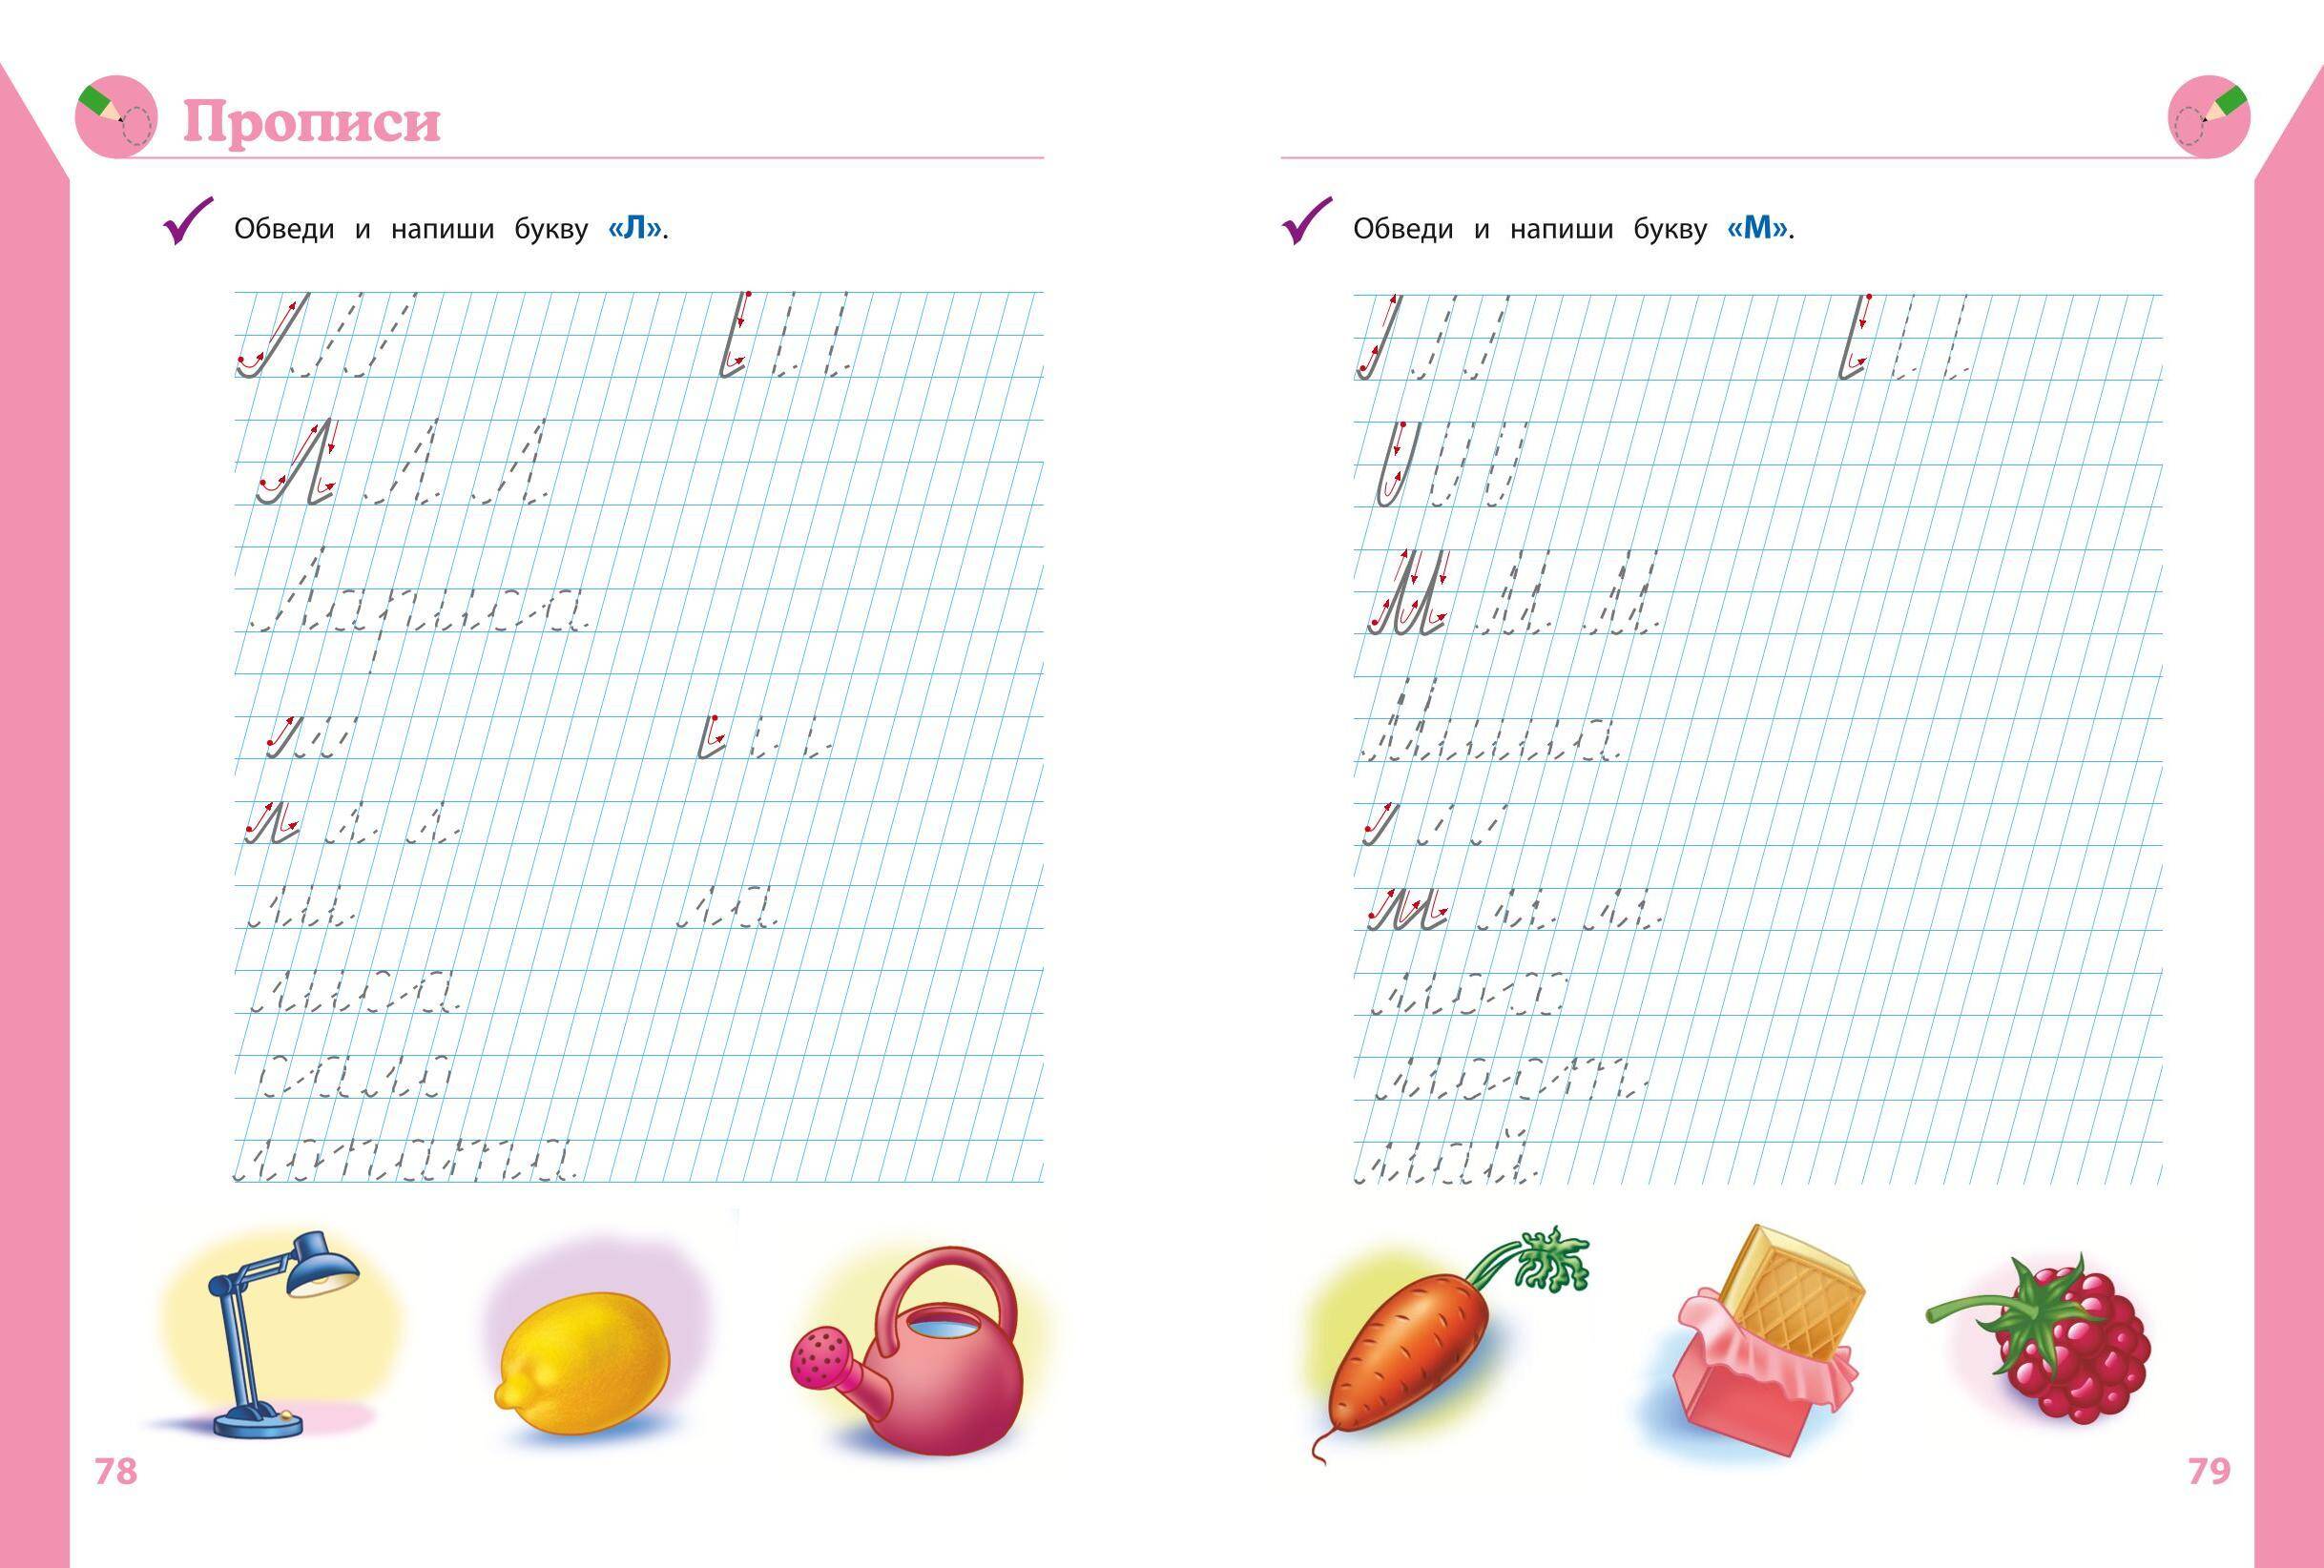 Прописи
Обведи и напиши букву «Л».
Л Л Л
Лариса
л л л
ли ла
лиса
сало
лопата
78
Обведи и напиши букву «М».
М М М
Миша
м м м
мох
мост
май
79